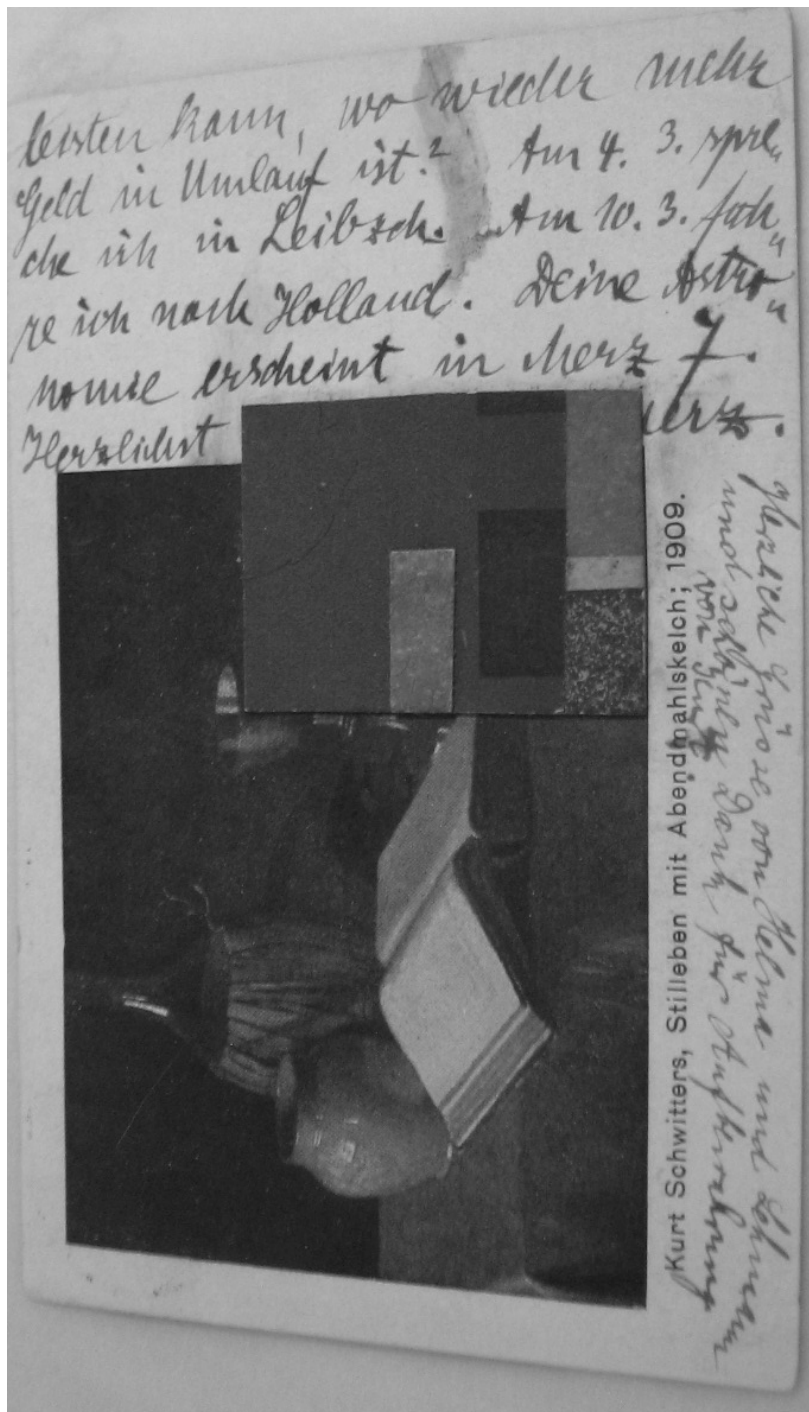 leisten kann, wo wieder mehr
Geld in Umlauf ist.? Am 4. 3. spre„
che ich in Leibzch. Am 10. 3. fah„
re ich nach Holland. Deine Astro„
nomie erscheint in Merz 7.
Herzlichst erz.
Kurt Schwitters, Stilleben mit Abendmahlskelch; 1909.
Herzliche Grüsse von Helma und
und schönen Dank für Aufbewahrung
von